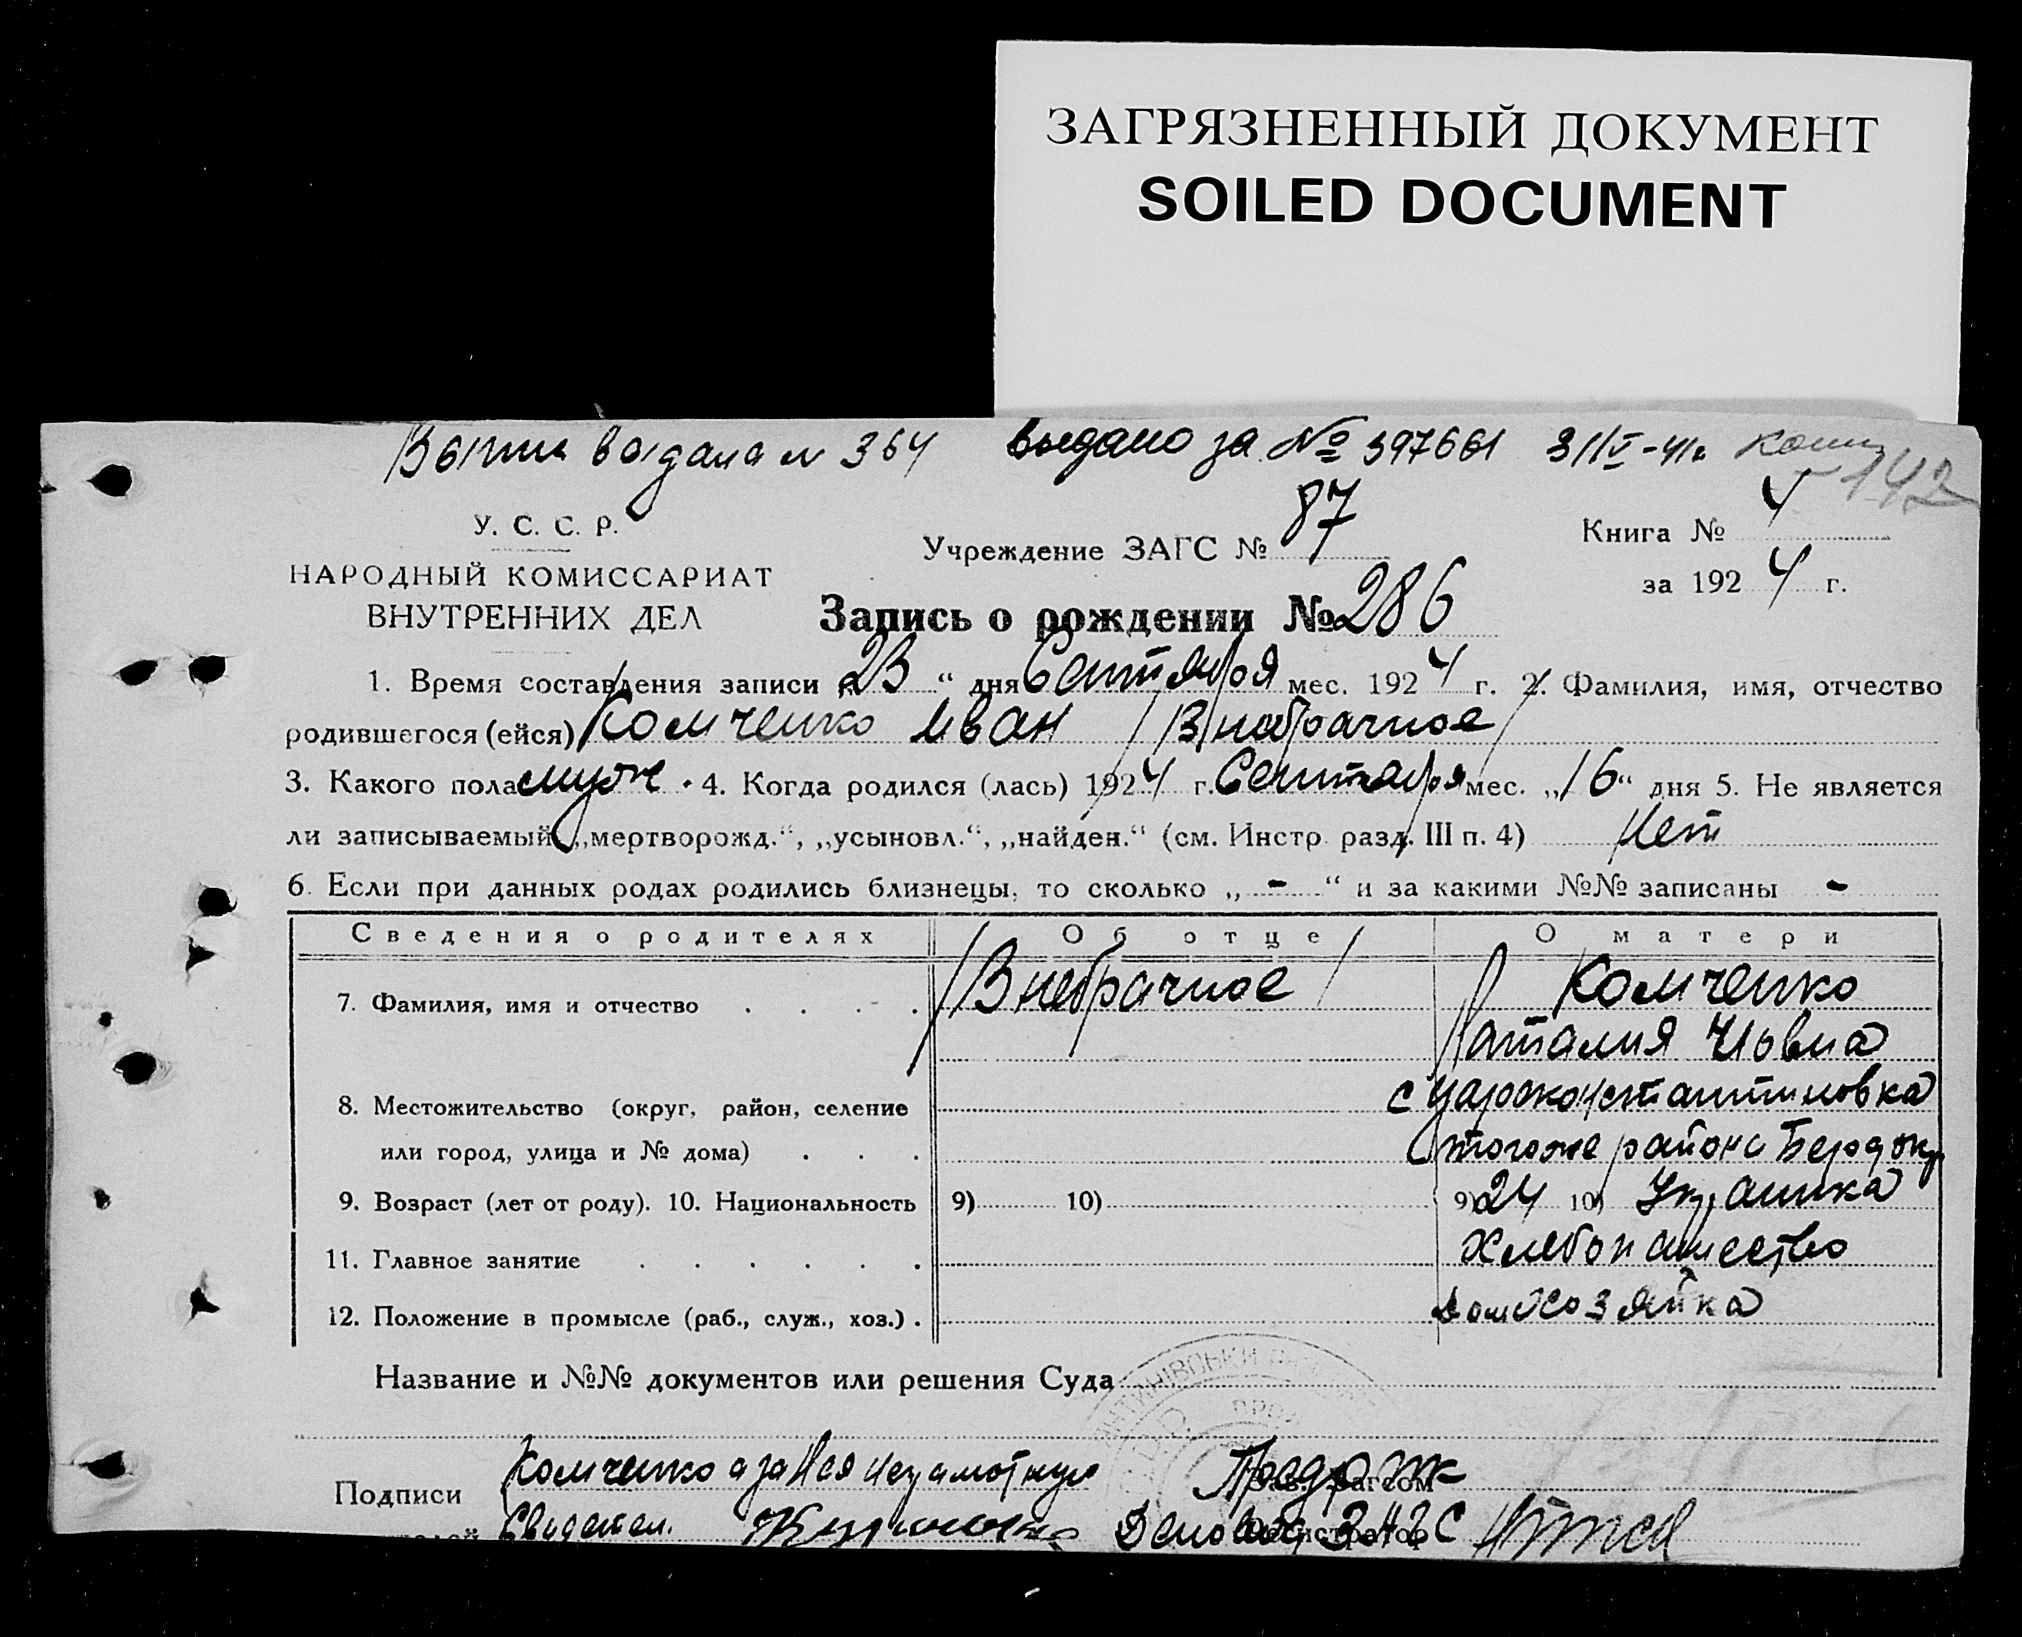 ЗАГРЯЗНЕННЫЙ ДОКУМЕНТ
SOILED DOCUMENT
выдана № 364 выдано за № 397661 3/IV-41г.
142
У. С. С. Р.
НАРОДНЫЙ КОМИССАРИАТ
ВНУТРЕННИХ ДЕЛ
Учреждение ЗАГС № 87
Книга № 4
за 1924 г.
Запись о рождении № 286
1. Время составления записи „23“ дня Сентября мес. 1924 г. 2. Фамилия, имя, отчество
родившегося (ейся) Комченко Иван /Внебрачное/
3. Какого пола мужс. 4. Когда родился (лась) 1924 г. Сентября мес. „16“ дня 5. Не является
ли записываемый „мертворожд.“, „усыновл.“, „найден.“ (см. Инстр. разд. III п. 4) Нет
6. Если при данных родах родились близнецы, то сколько „-“ и за какими №№ записаны -
Сведения о родителях Об отце О матери
7. Фамилия, имя и отчество /Внебрачное/ Комченко
Наталия Иовна
8. Местожительство (округ, район, селение с Цароконстантиновка
или город, улица и № дома) тогоже района Бердокр
9. Возраст (лет от роду). 10. Национальность 9) 10) 9) 24 10) Украинка
11. Главное занятие Хлебопашество
12. Положение в промысле (раб., служ., хоз.) домохозяйка
Название и №№ документов или решения Суда
Подписи Комченко а за Нея неграмотную
Зав. Загсом
Делопр ЗАГС
Регистратор